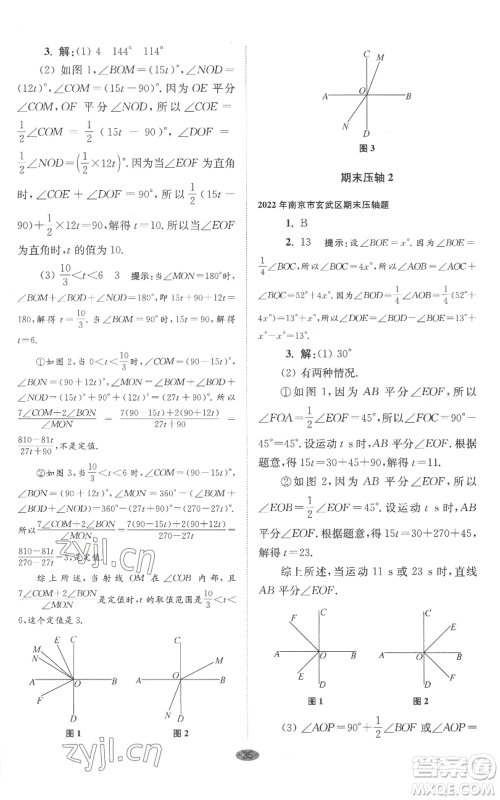 3. 解:(1) 4 144° 114°
(2) 如图 1,∠BOM=(15t)°,∠NOD=
(12t)°,∠COM=(15t-90)°. 因为 OE 平分
∠COM,OF 平分∠NOD,所以∠COE=
1/2∠COM=1/2(15t-90)°,∠DOF=
1/2∠NOD=(1/2×12t)°. 因为∠COE 为直角
时,∠COE+∠DOF=90°,所以1/2(15t-
90)+1/2×12t=90. 解得 t=10. 所以当∠COE
为直角时,t 的值为 10.
(3) 10/3<t<6 3 提示:当∠MON=180°时,
∠BOM+∠BOD+∠DON=180°,即 15t+90+
12t=180. 解得 t=10/3. 当 OM 与 OC 重合时,解得
t=6.
①如图 2,当 0<t<10/3时,∠COM=(90-15t)°,
∠BON=(90+12t)°,∠BOM=(15t)°,所以
(7∠COM+2∠BOM)/∠MON=(7(90-15t)+2×15t)/(15t+90+12t)=
(810-81t)/(27t+90),不是定值.
②如图 3,当10/3<t<6 时,∠COM=(90-15t)°,
∠BON=(90+12t)°,∠BOM=(15t)°,所以
∠MON=360°-(27t+90)°=(270-27t)°,所以
(7∠COM+2∠BON)/∠MON=(7(90-15t)+2(90+12t))/(360-90-27t)=
(810-81t)/(270-27t)=3,是定值.
综上所述,当射线 OM 在∠COB 内部,且
(7∠COM+2∠BON)/∠MON是定值时,t 的取值范围是10/3<t<
6,这个定值是 3.
E C
M
N
A O B
F
D
图 1
C
M
A O B
N
D
图 2
C
M
A O B
N
D
图 3
期末压轴 2
2022 年南京市玄武区期末压轴题
1. B
2. 13 提示:设∠BOE=x°. 因为∠BOE=
1/4∠BOC,所以∠BOC=4x°,所以∠AOB=∠AOC+
∠BOC=52°+4x°. 因为∠BOD=1/4∠AOB=1/4(52°+
4x°)=13°+x°,所以∠DOE=∠BOD-∠BOE=13°+
x°-x°=13°.
3. 解:(1) 30°
(2) 有两种情况.
①如图 1,因为 AB 平分∠EOF,所以
∠FOA=1/2∠EOF=45°,所以∠FOC=90°-
45°=45°. 设运动 t s 时,AB 平分∠EOF. 根据
题意,得 15t=120+45. 解得 t=11.
②如图 2,因为 AB 平分∠EOF,所以
∠BOF=1/2∠EOF=45°. 设运动 t s 时,AB 平
分∠EOF. 根据题意,得 15t=30+270+45. 解
得 t=23.
综上所述,当运动 11 s 或 23 s 时,直线
AB 平分∠EOF.
C
F
A O B
E
D
图 1
C
E
A O B
F
D
图 2
(3) ∠AOP=90°+1/2∠BOF 或∠AOP=
zyjl.cn
zyjl.cn